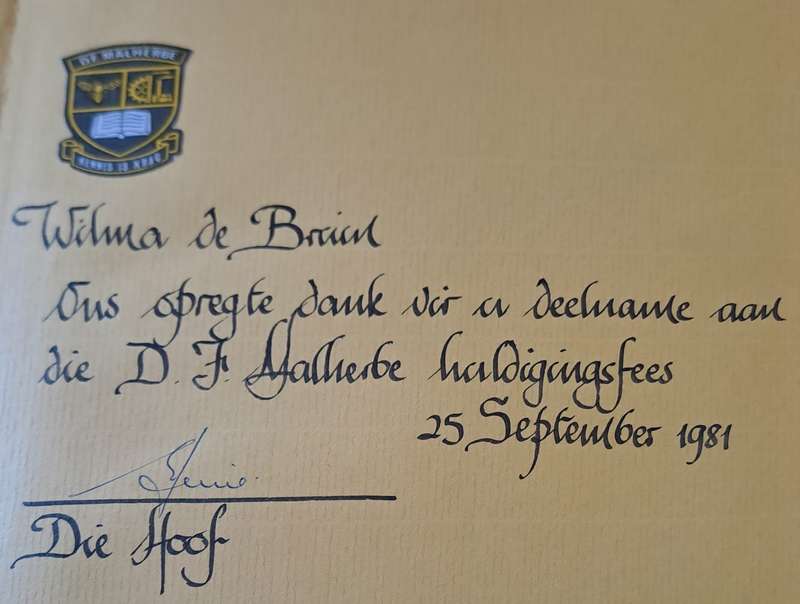 DF MALHERBE
KENNIS IS KRAG
Wilma de Bruin
Ons opregte dank vir u deelname aan
die D. F. Malherbe huldigingsfees
25 September 1981
Die Hoof